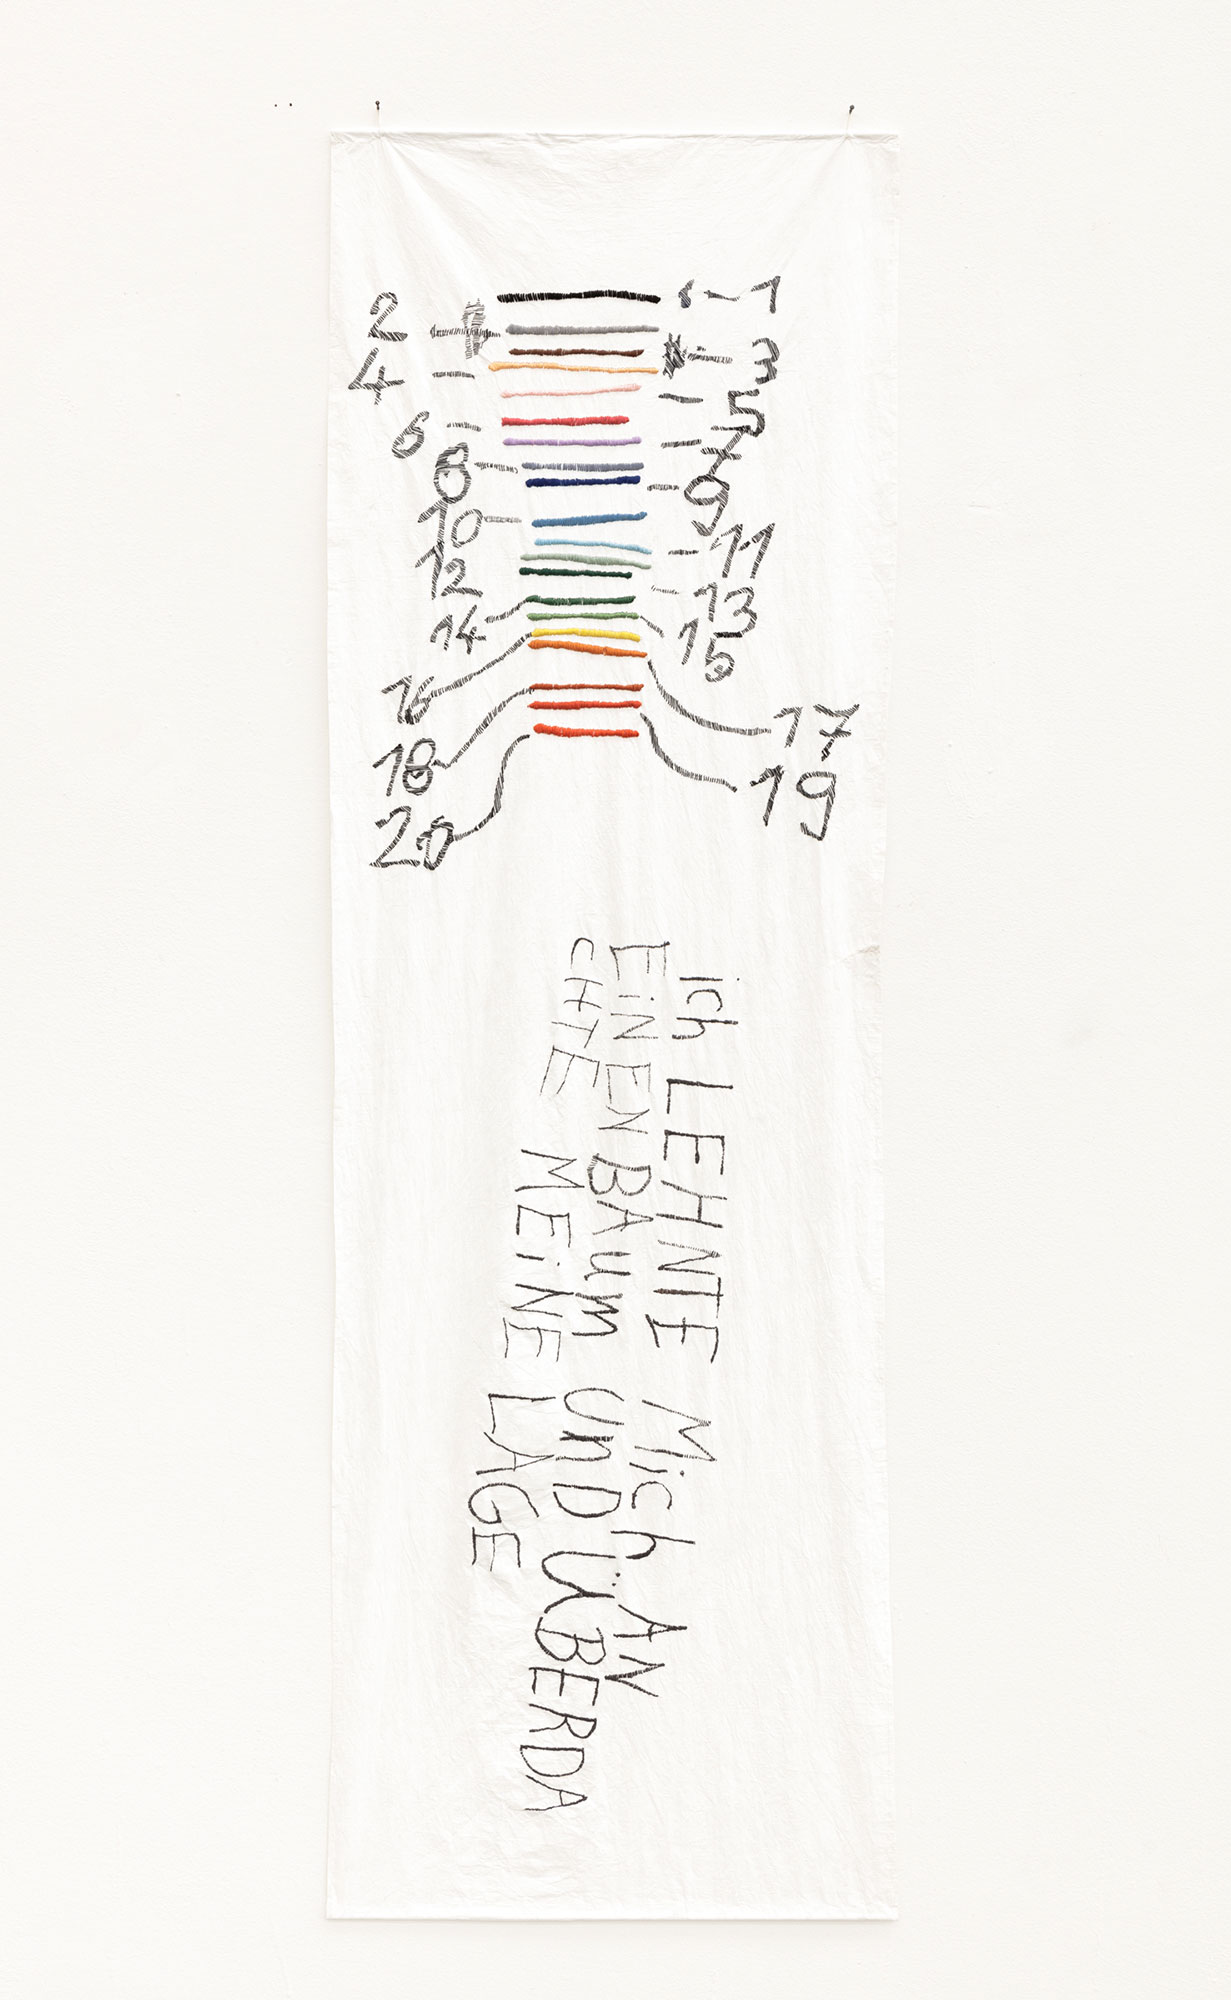 1
2
3
4
5
6
7
8
9
10
11
12
13
14
15
16
17
18
19
20
ich LEHNTE Mich AN
EiNEN BAum unD ÜBERDA
CHTE MEiNE LAGE